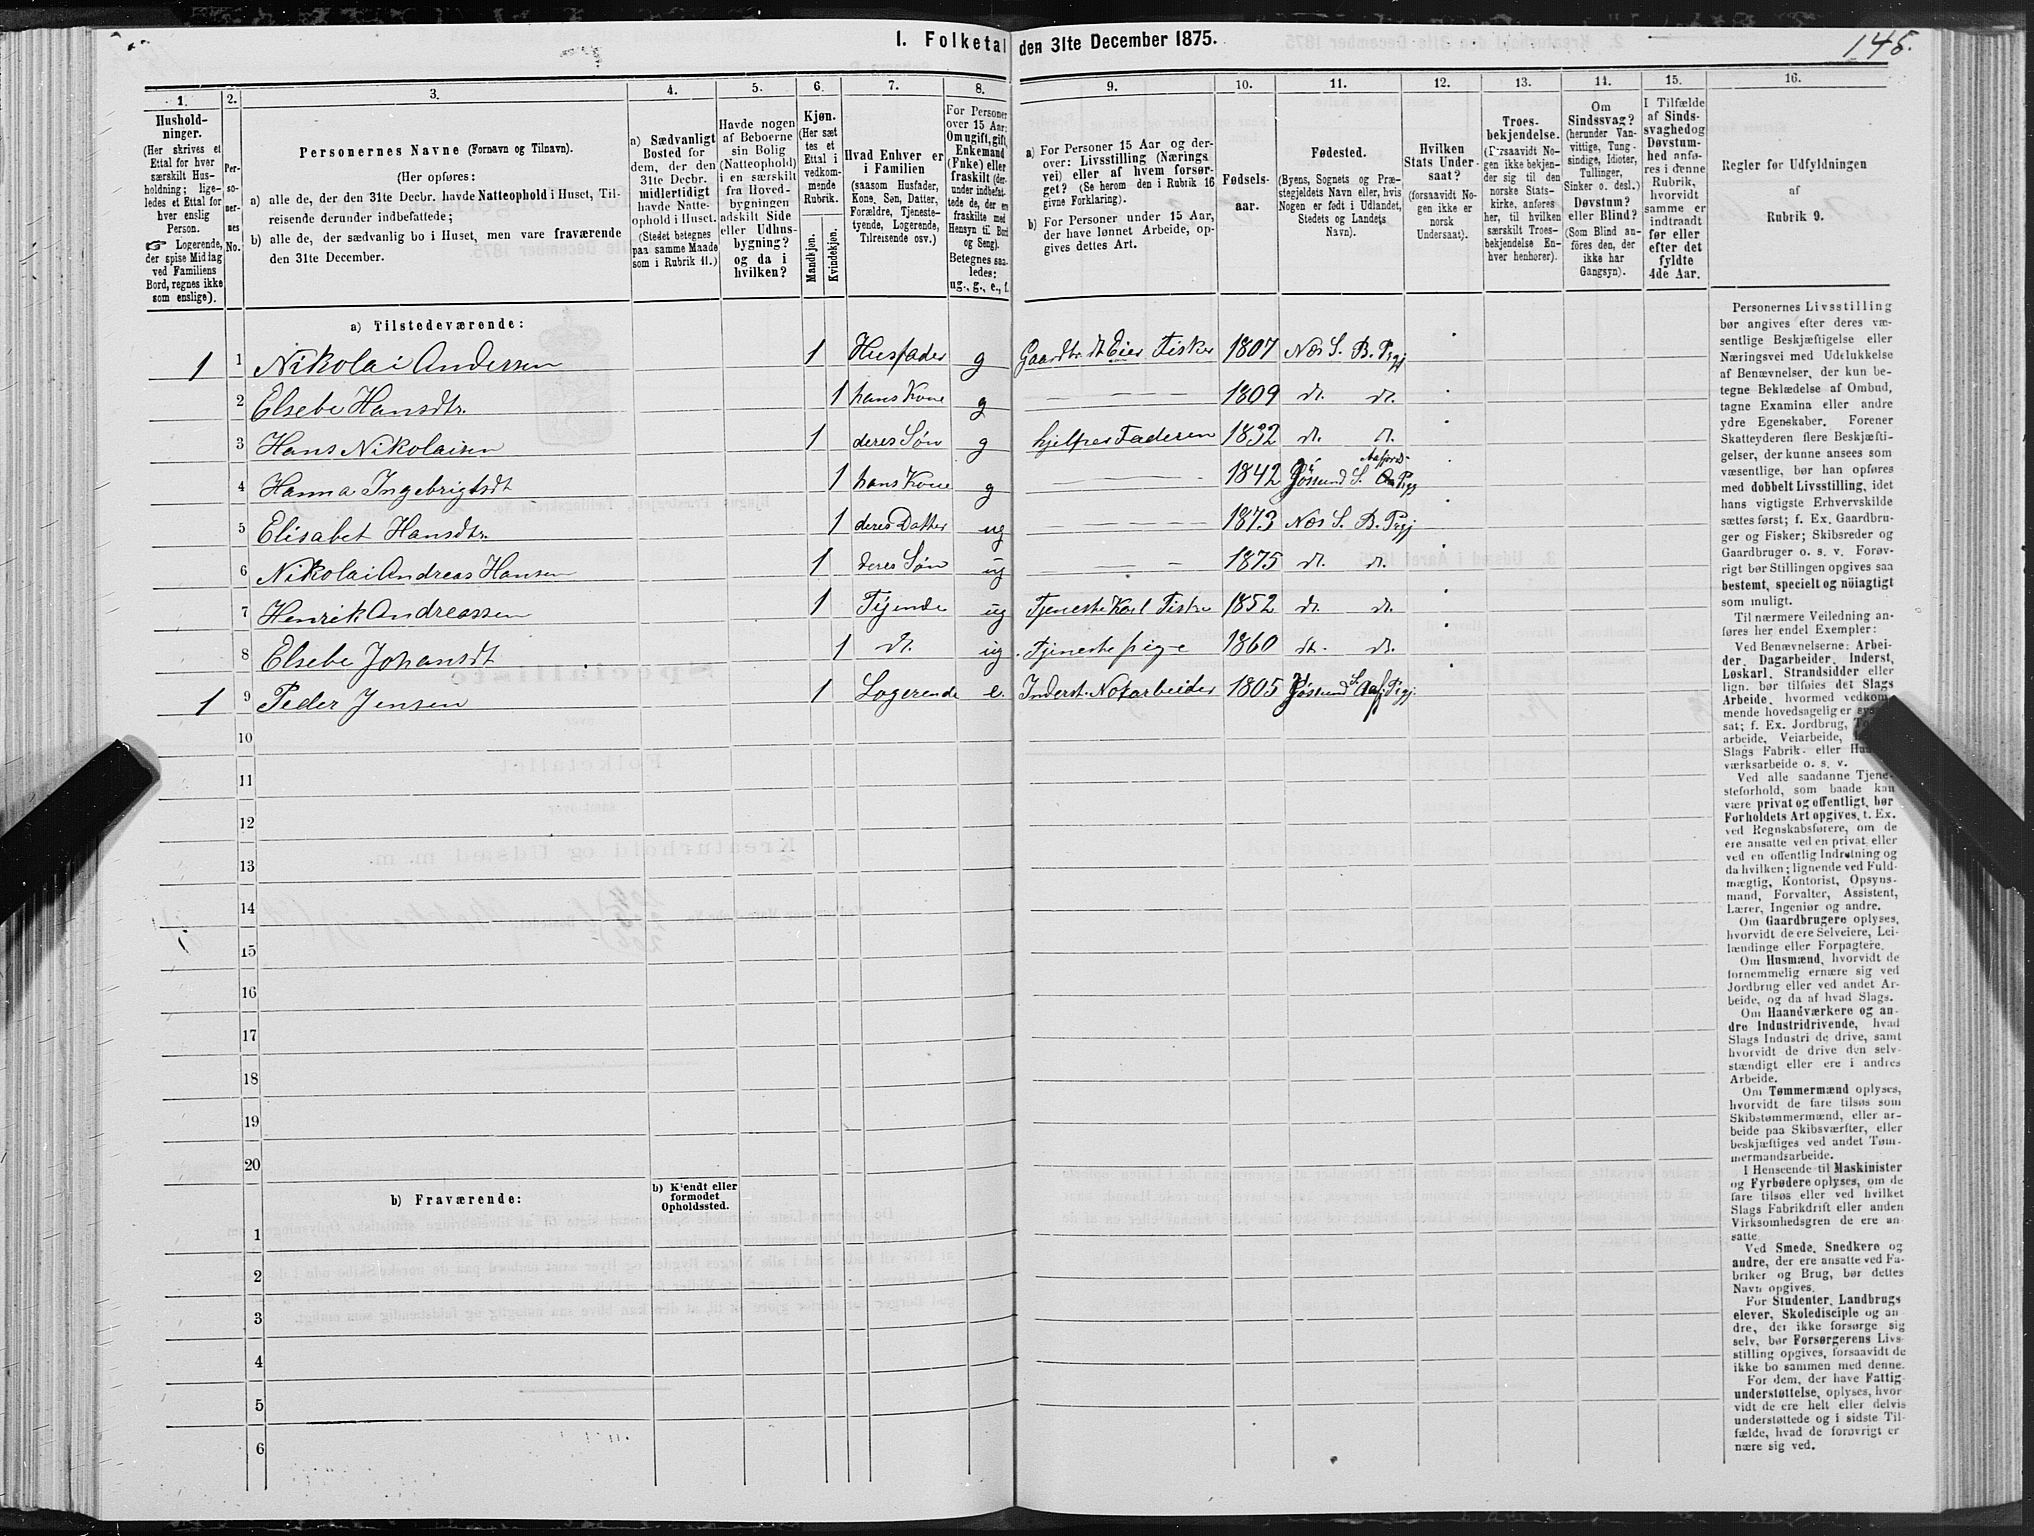 I. Folketal den 31te December 1875.
145.
1.
Hushold-
ninger.
(Her skrives et
Ettal for hver
særskilt Hus-
holdning; lige-
ledes et Ettal for
hver enslig
Person.
☞ Logerende,
der spise Middag
ved Familiens
Bord, regnes ikke
som enslige).
2.
Per-
so-
ner-
nes
No.
3.
Personernes Navne (Fornavn og Tilnavn).
(Her opføres:
a) alle de, der den 31te Decbr. havde Natteophold i Huset, Til-
reisende derunder indbefattede;
b) alle de, der sædvanlig bo i Huset, men vare fraværende
den 31te December.
4.
a) Sædvanligt
Bosted for
dem, der den
31te Decbr.
midlertidigt
havde Natte-
ophold i Huset.
(Stedet betegnes
paa samme Maade
som i Rubrik 11.)
5.
Havde nogen
af Beboerne
sin Bolig
(Natteophold)
i en særskilt
fra Hoved-
bygningen
adskilt Side
eller Udhus-
bygning?
og da i
hvilken?
6.
Kjøn.
(Her sæt
tes et
Ettal i
vedkom-
mende
Rubrik.
Mandkjøn.
Kvindekjøn.
7.
Hvad Enhver er
i Familien
(saasom Husfader,
Kone, Søn, Datter,
Forældre, Tjeneste-
tyende, Logerende,
Tilreisende osv.)
8.
For Personer
over 15 Aar:
Om ugift, gift,
Enkemand
(Enke) eller
fraskilt (der-
under indbefat-
tede de, der en
fraskilte med
Hensyn til Bord
og Seng).
Betegnes saa-
ledes:
ug., g., e., f.
9.
a) For Personer 15 Aar og der-
over: Livsstilling (Nærings
vei) eller af hvem forsør-
get? (Se herom den i Rubrik 16
givne Forklaring).
b) For Personer under 15 Aar,
der have lønnet Arbeide, op-
gives dettes Art.
10.
Fødsels-
aar.
11.
Fødested.
(Byens, Sognets og Præ-
stegjeldets Navn eller, hvis
Nogen er født i Udlandet,
Stedets og Landets
Navn).
12.
Hvilken
Stats Under-
saat?
(forsaavidt No-
gen ikke er
norsk
Undersaat).
13.
Troes-
bekjendelse.
(Forsaavidt No-
gen ikke bekjen-
der sig til den
norske Stats-
kirke, anføres
her, til hvilken
særskilt Troes-
bekjendelse En-
hver henhører).
14.
Om
Sindssvag?
(herunder Van-
vittige, Tung-
sindige, Idioter,
Tullinger,
Sinker o. desl.)
Døvstum?
eller Blind?
(Som Blind an-
føres den, der
ikke har
Gangsyn).
15.
I Tilfælde
af Sinds-
svaghed og
Døvstum-
hed anfø-
res i denne
Rubrik,
hvorvidt
samme er
indtraadt
før eller
efter det
fyldte
4de Aar.
16.
Regler for Udfyldningen
af
Rubrik 9.
a) Tilstedeværende:
1 1 Nikolai Andersen 1 Husfader g Gaardbr dt Eier Fisker 1807 Næs S. B. Prgj
2 Elsebe Hansdtr. 1 hans Kone g — — — — 1809 dt. dt.
3 Hans Nikolaisen 1 deres Søn g hjelper Faderen 1832 dt. dt.
4 Hanna Ingebrigtsdt 1 hans Kone g — — — — 1842 Jøssund S. Aafjord- Prgj
5 Elisabet Hansdtr. 1 deres Datter ug — — — — 1873 Næs S. B. Prgj
6 Nikolai Andreas Hansen 1 deres Søn ug — — — 1875 dt. dt.
7 Henrik Andreassen 1 Tjende ug Tjeneste Karl Fisker 1852 dt. dt.
8 Elsebe Johansdt 1 dt. ug Tjenestepige 1860 dt. dt.
1 9 Peder Jensen 1 Logerende e. Inderst. Notarbeider 1805 Jøssund S. Aafj. Prgj.
10
11
12
13
14
15
16
17
18
19
20
b) Fraværende:
b) Kjendt eller
formodet
Opholdssted.
1
2
3
4
5
6
Personernes Livsstilling
bør angives efter deres væ-
sentlige Beskjæftigelse eller
Næringsvei med Udelukkelse
af Benævnelser, der kun be-
tegne Beklædelse af Ombud,
tagne Examina eller andre
ydre Egenskaber. Forener
Skatteyderen flere Beskjæfti-
gelser, der kunne ansees som
væsentlige, bør han opføres
med dobbelt Livsstilling, idet
hans vigtigste Erhvervskilde
sættes først; f. Ex. Gaardbru-
ger og Fisker; Skibsreder og
Gaardbruger o. s. v. Forøv-
rigt bør Stillingen opgives saa
bestemt, specielt og nøiagtigt
som muligt.
Til nærmere Veiledning an-
føres her endel Exempler:
Ved Benævnelserne: Arbei-
der, Dagarbeider, Inderst,
Løskarl, Strandsidder eller
lign. bør tilføies det Slags
Arbeide, hvormed vedkom-
mende hovedsagelig er syssel-
sat; f. Ex. Jordbrug, 
arbeide, Veiarbeide, 
Slags Fabrik- eller Haand-
værksarbeide o. s. v.
Ved alle saadanne Tjene-
steforhold, som baade kan
være privat og offentligt, bør
Forholdets Art opgives, t. Ex.
ved Regnskabsførere, om de
ere ansatte ved en privat eller
ved en offentlig Indretning og
da hvilken; lignende ved Fuld-
mægtig, Kontorist, Opsyns-
mand, Forvalter, Assistent,
Lærer, Ingeniør og andre.
Om Gaardbrugere oplyses,
hvorvidt de ere Selveiere, Lei-
lændinge eller Forpagtere.
Om Husmænd, hvorvidt de
fornemmelig ernære sig ved
Jordbrug eller ved andet Ar-
beide, og da af hvad Slags.
Om Haandværkere og an-
dre Industridrivende, hvad
Slags Industri de drive, samt
hvorvidt de drive den selv-
stændigt eller ere i andres
Arbeide.
Om Tømmermænd oplyses,
hvorvidt de fare tilsøs som
Skibstømmermænd, eller ar-
beide paa Skibsværfter, eller
beskjæftiges ved andet Tøm-
mermandsarbeide.
I Henseende til Maskinister
og Fyrbødere oplyses, om de
fare tilsøs eller ved hvilket
Slags Fabrikdrift eller anden
Virksomhedsgren de ere an-
satte.
Ved Smede, Snedkere og
andre, der ere ansatte ved Fa-
briker og Brug, bør dettes
Navn opgives.
For Studenter, Landbrugs
elever, Skoledisciple og an-
dre, der ikke forsørge sig
selv, bør Forsørgerens Livs-
stilling opgives, forsaavidt de
ikke bo sammen med denne.
For dem, der have Fattig-
understøttelse, oplyses, hvor-
vidt de ere helt eller delvis
understøttede og i sidste Til-
fælde, hvad de forøvrigt er
nære sig ved.